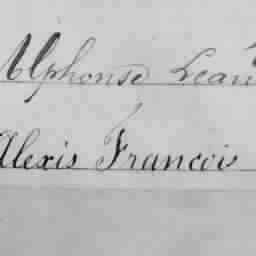 Alphonse Lean
Alexis Francois